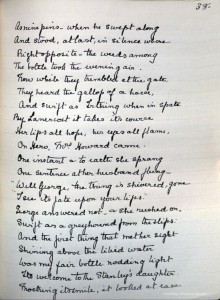 39.
As in a pine – when he swept along
And stood, at last, in silence were
Right opposite – the weeds among
The bottle took the evening air.
Now while they trembled at the gate
They heard the gallop of a horse,
And swift as Lething when in spate
By Lanercost it takes its course
Her lips all hope, her eyes all flame,
On Nero, Frk Howard came.
One instant – to earth she sprang
One sentence at her husband flung –
Well George, the thing is shivered, gone
I see its fate upon your lips.
George answered not – she rushed on
Swift as a greyhound from the slips.
And the first thing that met her sight
Shining above the lilied water
Was our fair bottle nodding light
Its welcome to the Stanley's daughter
Mocking its smile, it looked at ease